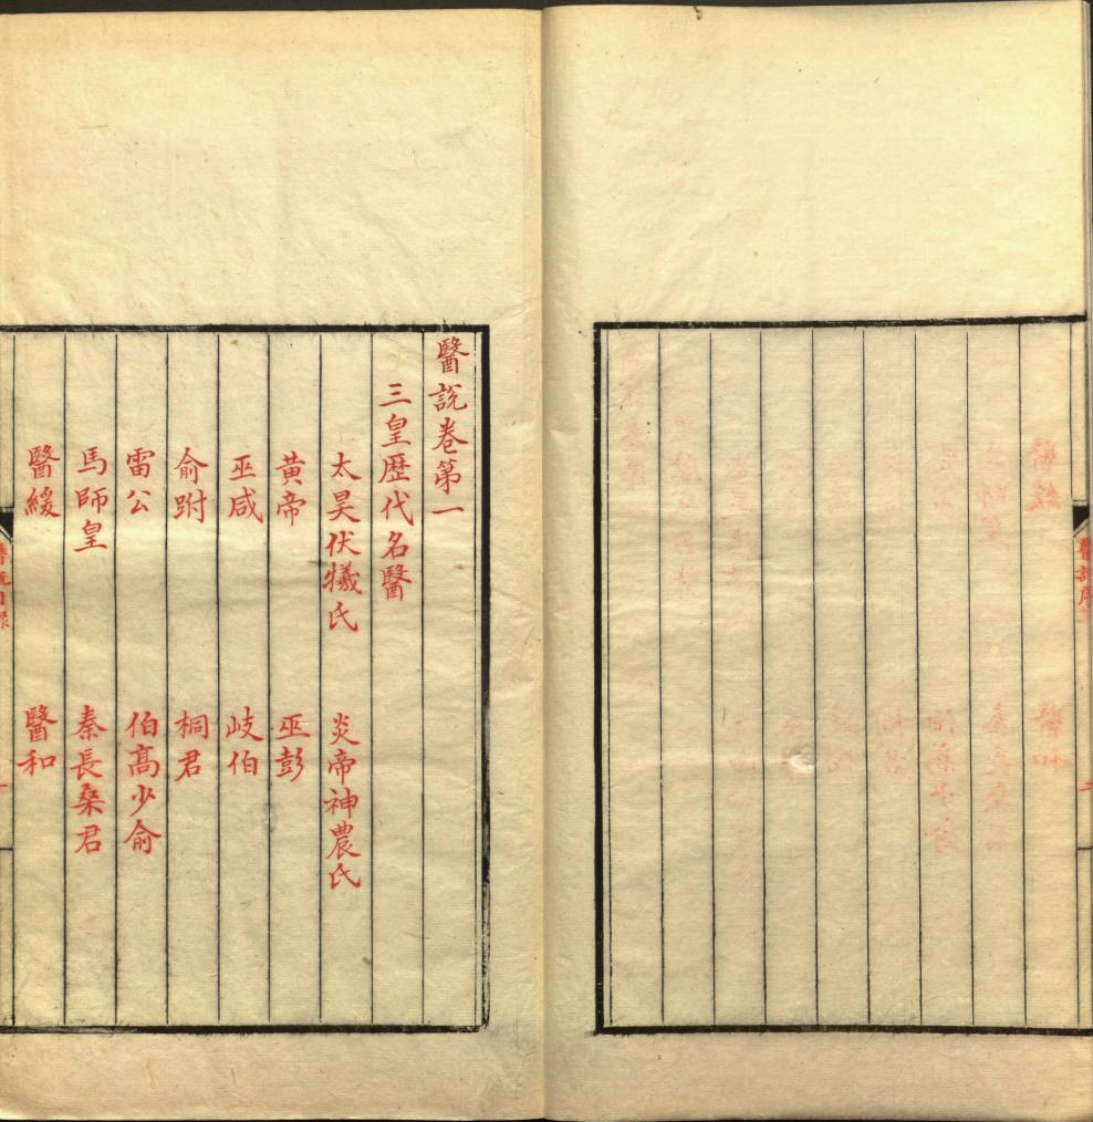 醫說卷第一
三皇歷代名醫
太昊伏犧氏 炎帝神農氏
黃帝 巫彭
巫咸 岐伯
俞跗 桐君
雷公 伯高少俞
馬師皇 秦長桑君
醫緩 醫和